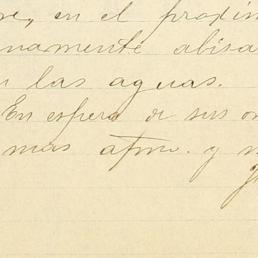 re, en el proxim
namente abisa
n las aguas.
En espera de sus or
mas atmo. y